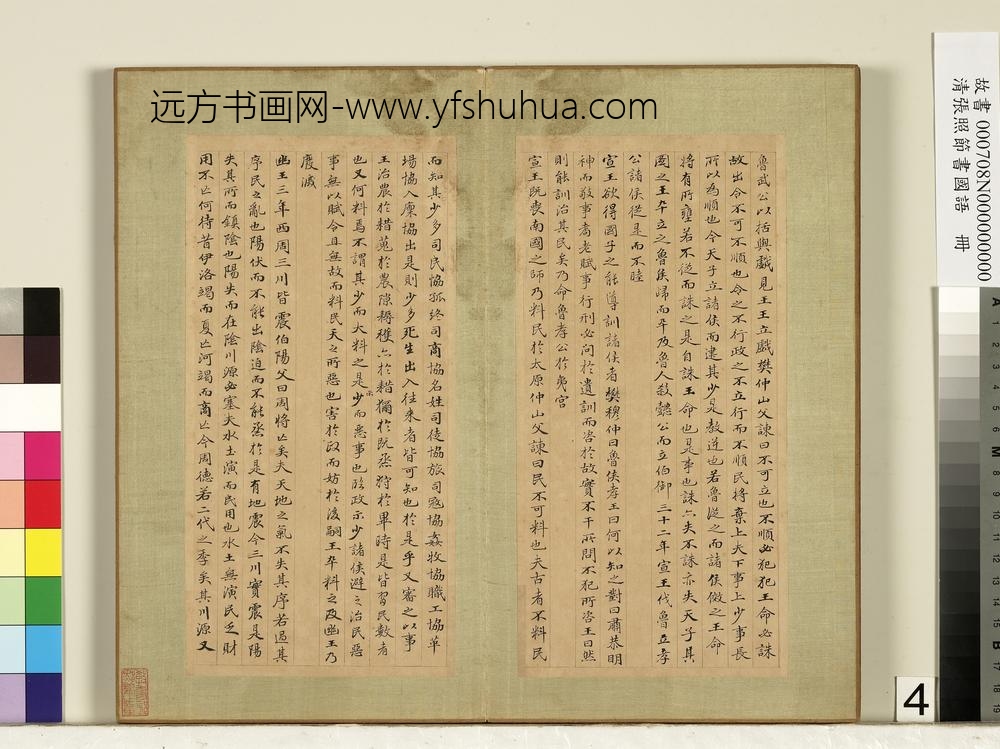 远方书画网-www.yfshuhua.com
故書 000708N000000000
清張照節書國語 冊
魯武公以括與戲見王王立戲樊仲山父諫曰不可立也不順必犯犯王命必誅
故出令不可不順也令之不行政之不立行而不順民將棄上夫下事上少事長
所以為順也今天子立諸侯而建其少是教逆也若魯從之而諸侯傚之王命
將有所壅若不從而誅之是自誅王命也是事也誅亦失不誅亦失天子其
圖之王卒立之魯侯歸而卒及魯人殺懿公而立伯御 三十二年宣王伐魯立孝
公諸侯從是而不睦
宣王欲得國子之能導訓諸侯者樊穆仲曰魯侯孝王曰何以知之對曰肅恭明
神而敬事耇老賦事行刑必問於遺訓而咨於故實不干所問不犯所咨王曰然
則能訓治其民矣乃命魯孝公於夷宮
宣王既喪南國之師乃料民於太原仲山父諫曰民不可料也夫古者不料民
而知其少多司民協孤終司商協名姓司徒協旅司寇協姦牧協職工協革
場協入廩協出是則少多死生出入往來者皆可知也於是乎又審之以事
王治農於耤蒐於農隙耨穫亦於耤獮於既烝狩於畢時是皆習民數者
也又何料焉不謂其少而大料之是示少而惡事也臨政示少諸侯避之治民惡
事無以賦令且無故而料民天之所惡也害於政而妨於後嗣王卒料之及幽王乃
廢滅
幽王三年西周三川皆震伯陽父曰周將亡矣夫天地之氣不失其序若過其
序民之亂也陽伏而不能出陰迫而不能烝於是有地震今三川實震是陽
失其所而鎮陰也陽失而在陰川源必塞夫水土演而民用也水土無演民乏財
用不亡何待昔伊洛竭而夏亡河竭而商亡今周德若二代之季矣其川源又
4